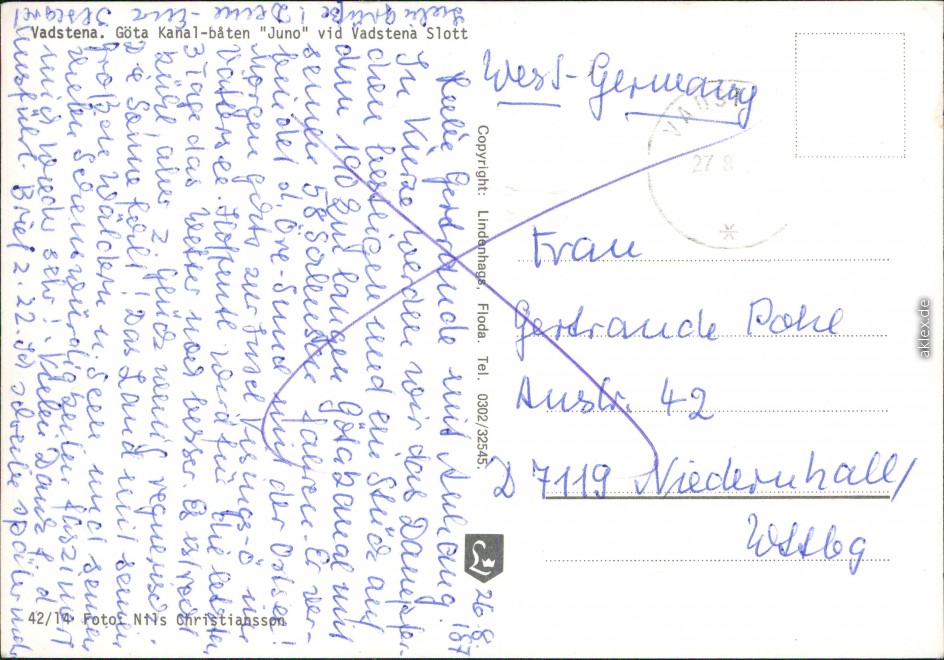 Vadstena. Göta Kanal-båten "Juno" vid Vadstena Slott
26.8.
187
Liebe Gertraude mit Anhang
In Kürze werden wir das Dampfer-
chen besteigen und ein Stück auf
dem 190 km langen Götakanal mit
seinen 58 Schleusen fahren. Er ver-
bindet d. Öre-Sund mit der Ostsee!
Morgen geht's zur Insel Visings-ö im
Vättersee. Hoffentl. wird für die letzten
3 Tage das Wetter noch besser. Es ist recht
kühl, aber z. Glück wenig regnerisch.
Die Sonne fehlt! Das Land mit seinen
großen Wäldern u. Seen und seinen
vielen Sehenswürdigkeiten fasziniert
mich sehr! Vielen Dank f. d.
ausführl. Brief z. 22. Ich schreibe später mehr
viele Grüße! Deine
Copyright: Lindenhags, Floda. Tel. 0302/32545.
L
42/14 Foto: Nils Christiansson
West-Germany
27 8
Frau
Gertraude Pohl
Austr. 42
D 7119 Niedernhall/
Wttbg
aklex.de